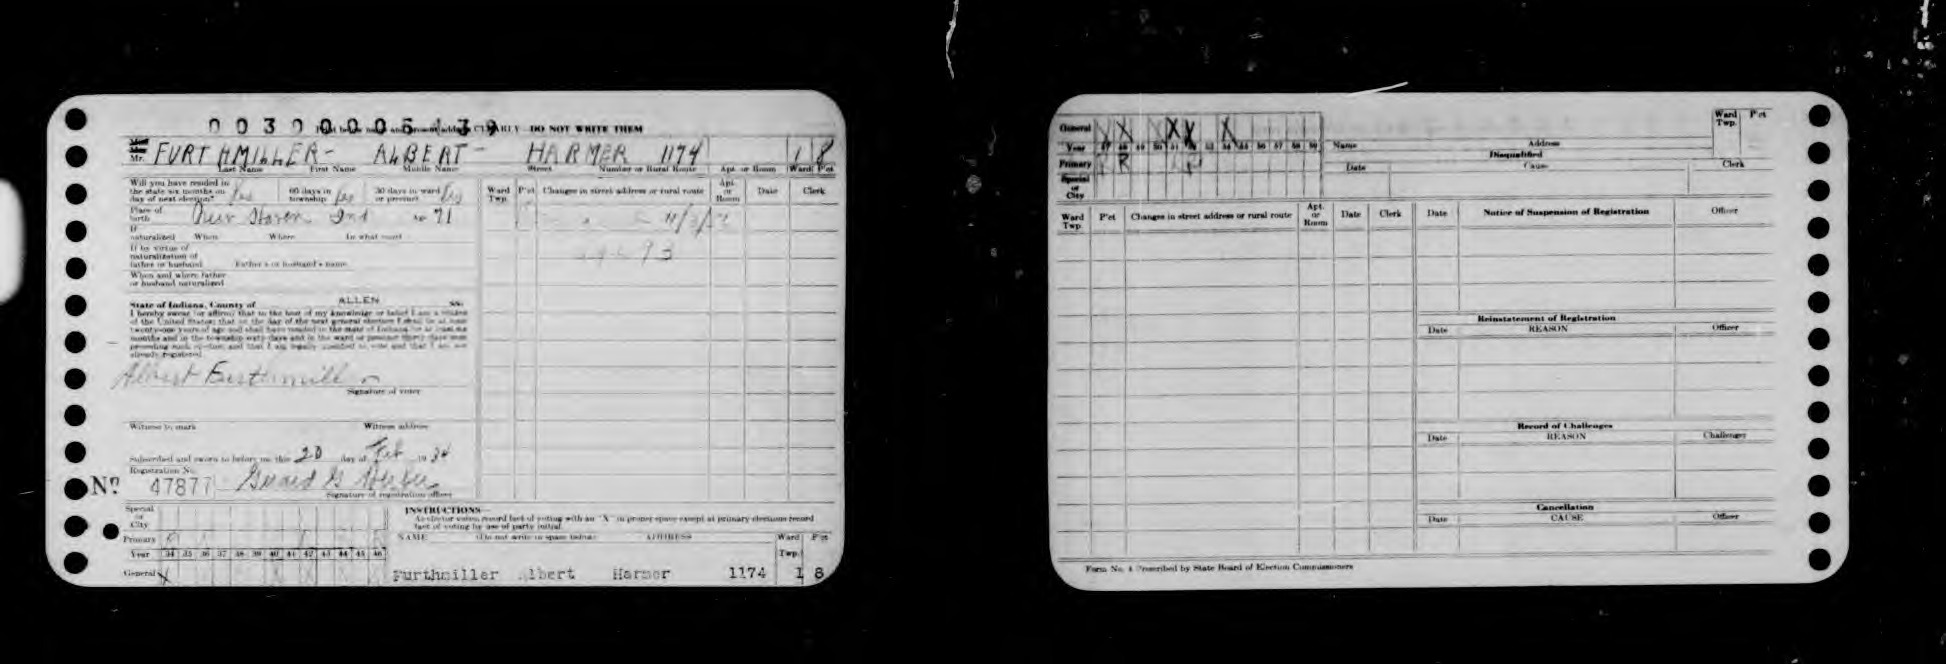 00300005439
Print below name and present address CLEARLY—DO NOT WRITE THEM
Mr. FURTHMILLER- ALBERT- HARMER 1174 1 8
Last Name First Name Middle Name Street Number or Rural Route Apt. or Room Ward P'ct
Will you have resided in the state six months on day of next election? Yes 60 days in township Yes 30 days in ward or precinct Yes
Ward Twp. P'ct Changes in street address or rural route Apt. or Room Date Clerk
Place of birth New Haven Ind Age 71
11/3/
If naturalized When Where In what court
If by virtue of naturalization of father or husband Father's or husband's name
When and where father or husband naturalized
State of Indiana, County of ALLEN SS:
I hereby swear (or affirm) that to the best of my knowledge or belief I am a citizen
of the United States; that on the day of the next general election I shall be at least
twenty-one years of age and shall have resided in the state of Indiana for at least six
months and in the township sixty days and in the ward or precinct thirty days next
preceding such election; and that I am legally entitled to vote and that I am not
already registered.
Albert Furthmiller
Signature of voter
Witness to mark Witness address
Subscribed and sworn to before me this 20 day of Feb 1934
Registration No.
No. 47877
Signature of registration officer
INSTRUCTIONS—
As elector votes, record fact of voting with an "X" in proper space except at primary elections record
fact of voting by use of party initial.
Special or City
Primary R
Year 34 35 36 37 38 39 40 41 42 43 44 45 46
General X
NAME (Do not write in space below) ADDRESS Ward Twp. P'ct
Furthmiller Albert Harmer 1174 1 8
General X X X X X X
Year 47 48 49 50 51 52 53 54 55 56 57 58 59
Primary R R
Special or City
Name Address Ward Twp. P'ct
Disqualified
Date Cause Clerk
Ward Twp. P'ct Changes in street address or rural route Apt. or Room Date Clerk
Date Notice of Suspension of Registration Officer
Reinstatement of Registration
Date REASON Officer
Record of Challenges
Date REASON Challenger
Cancellation
Date CAUSE Officer
Form No. 4 Prescribed by State Board of Election Commissioners